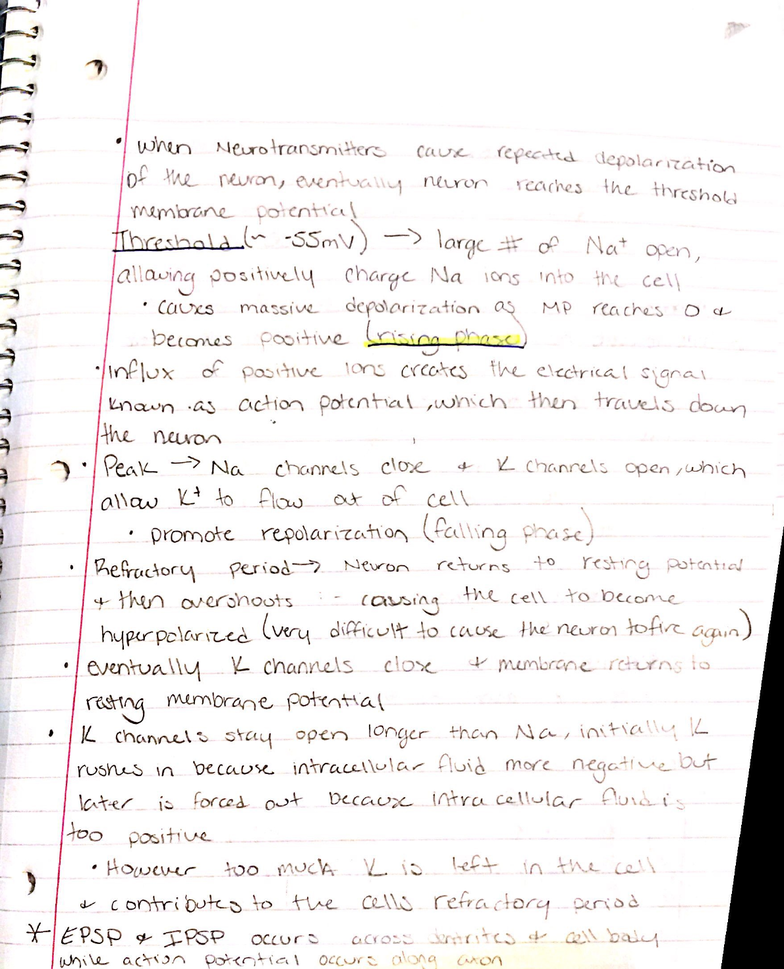 • when Neurotransmitters cause repeated depolarization
of the neuron, eventually neuron reaches the threshold
membrane potential
Threshold (~ -55mV) → large # of Na⁺ open,
allowing positively charge Na ions into the cell
• causes massive depolarization as MP reaches 0 &
becomes positive (rising phase)
• Influx of positive ions creates the electrical signal
known as action potential, which then travels down
the neuron
• Peak → Na channels close & K channels open, which
allow K⁺ to flow out of cell
• promote repolarization (falling phase)
• Refractory period → Neuron returns to resting potential
& then overshouts - causing the cell to become
hyperpolarized (very difficult to cause the neuron to fire again)
• eventually K channels close & membrane returns to
resting membrane potential
• K channels stay open longer than Na, initially K
rushes in because intracellular fluid more negative but
later is forced out because intracellular fluid is
too positive
• However too much K is left in the cell
& contributes to the cells refractory period
* EPSP & IPSP occurs across dentrites & cell body
while action potential occurs along axon